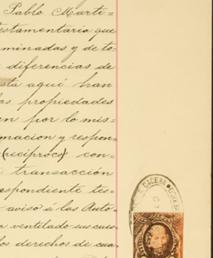 Pablo Marti=
testamentario que
minadas y de to-
diferencias de
sta aquí han
as propiedades
en por lo mis-
macion y respon-
(reciproco) con-
transacción
spondiente tes-
aviso á las Auto-
a ventilado su cuen
os derechos de cua